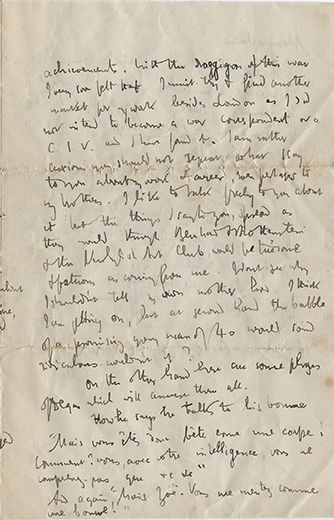 achievement. With the draggign of this war
I very soon felt that I must try & find another
market for my work besides London as I did
not intend to become a war correspondent or a
C.I.V. and I have found it. I am rather
anxious you should not repeat, what I say
to you about my work or career, even perhaps to
my brothers. I like to talk freely to you about
it but the things I say to you, spread as
they would through Rothenstein
& the English Art Club would be tiresome
& fatuous as coming from me. I don't see why
I shouldn't tell my own mother how I think
I am getting on, but at second hand the babble
of a promising young man of 40 would sound
ridiculous wouldn't it?
On the other hand here are some phrases
of Degas which will amuse them all.
How he says he talks to his bonne
"Mais vous êtes donc bête comme une carpe!
Comment? vous, avec votre intelligence, vous ne
comprenez pas que &c &c"
And again, "Mais Zoë. Vous me mentez comme
une bonne!"